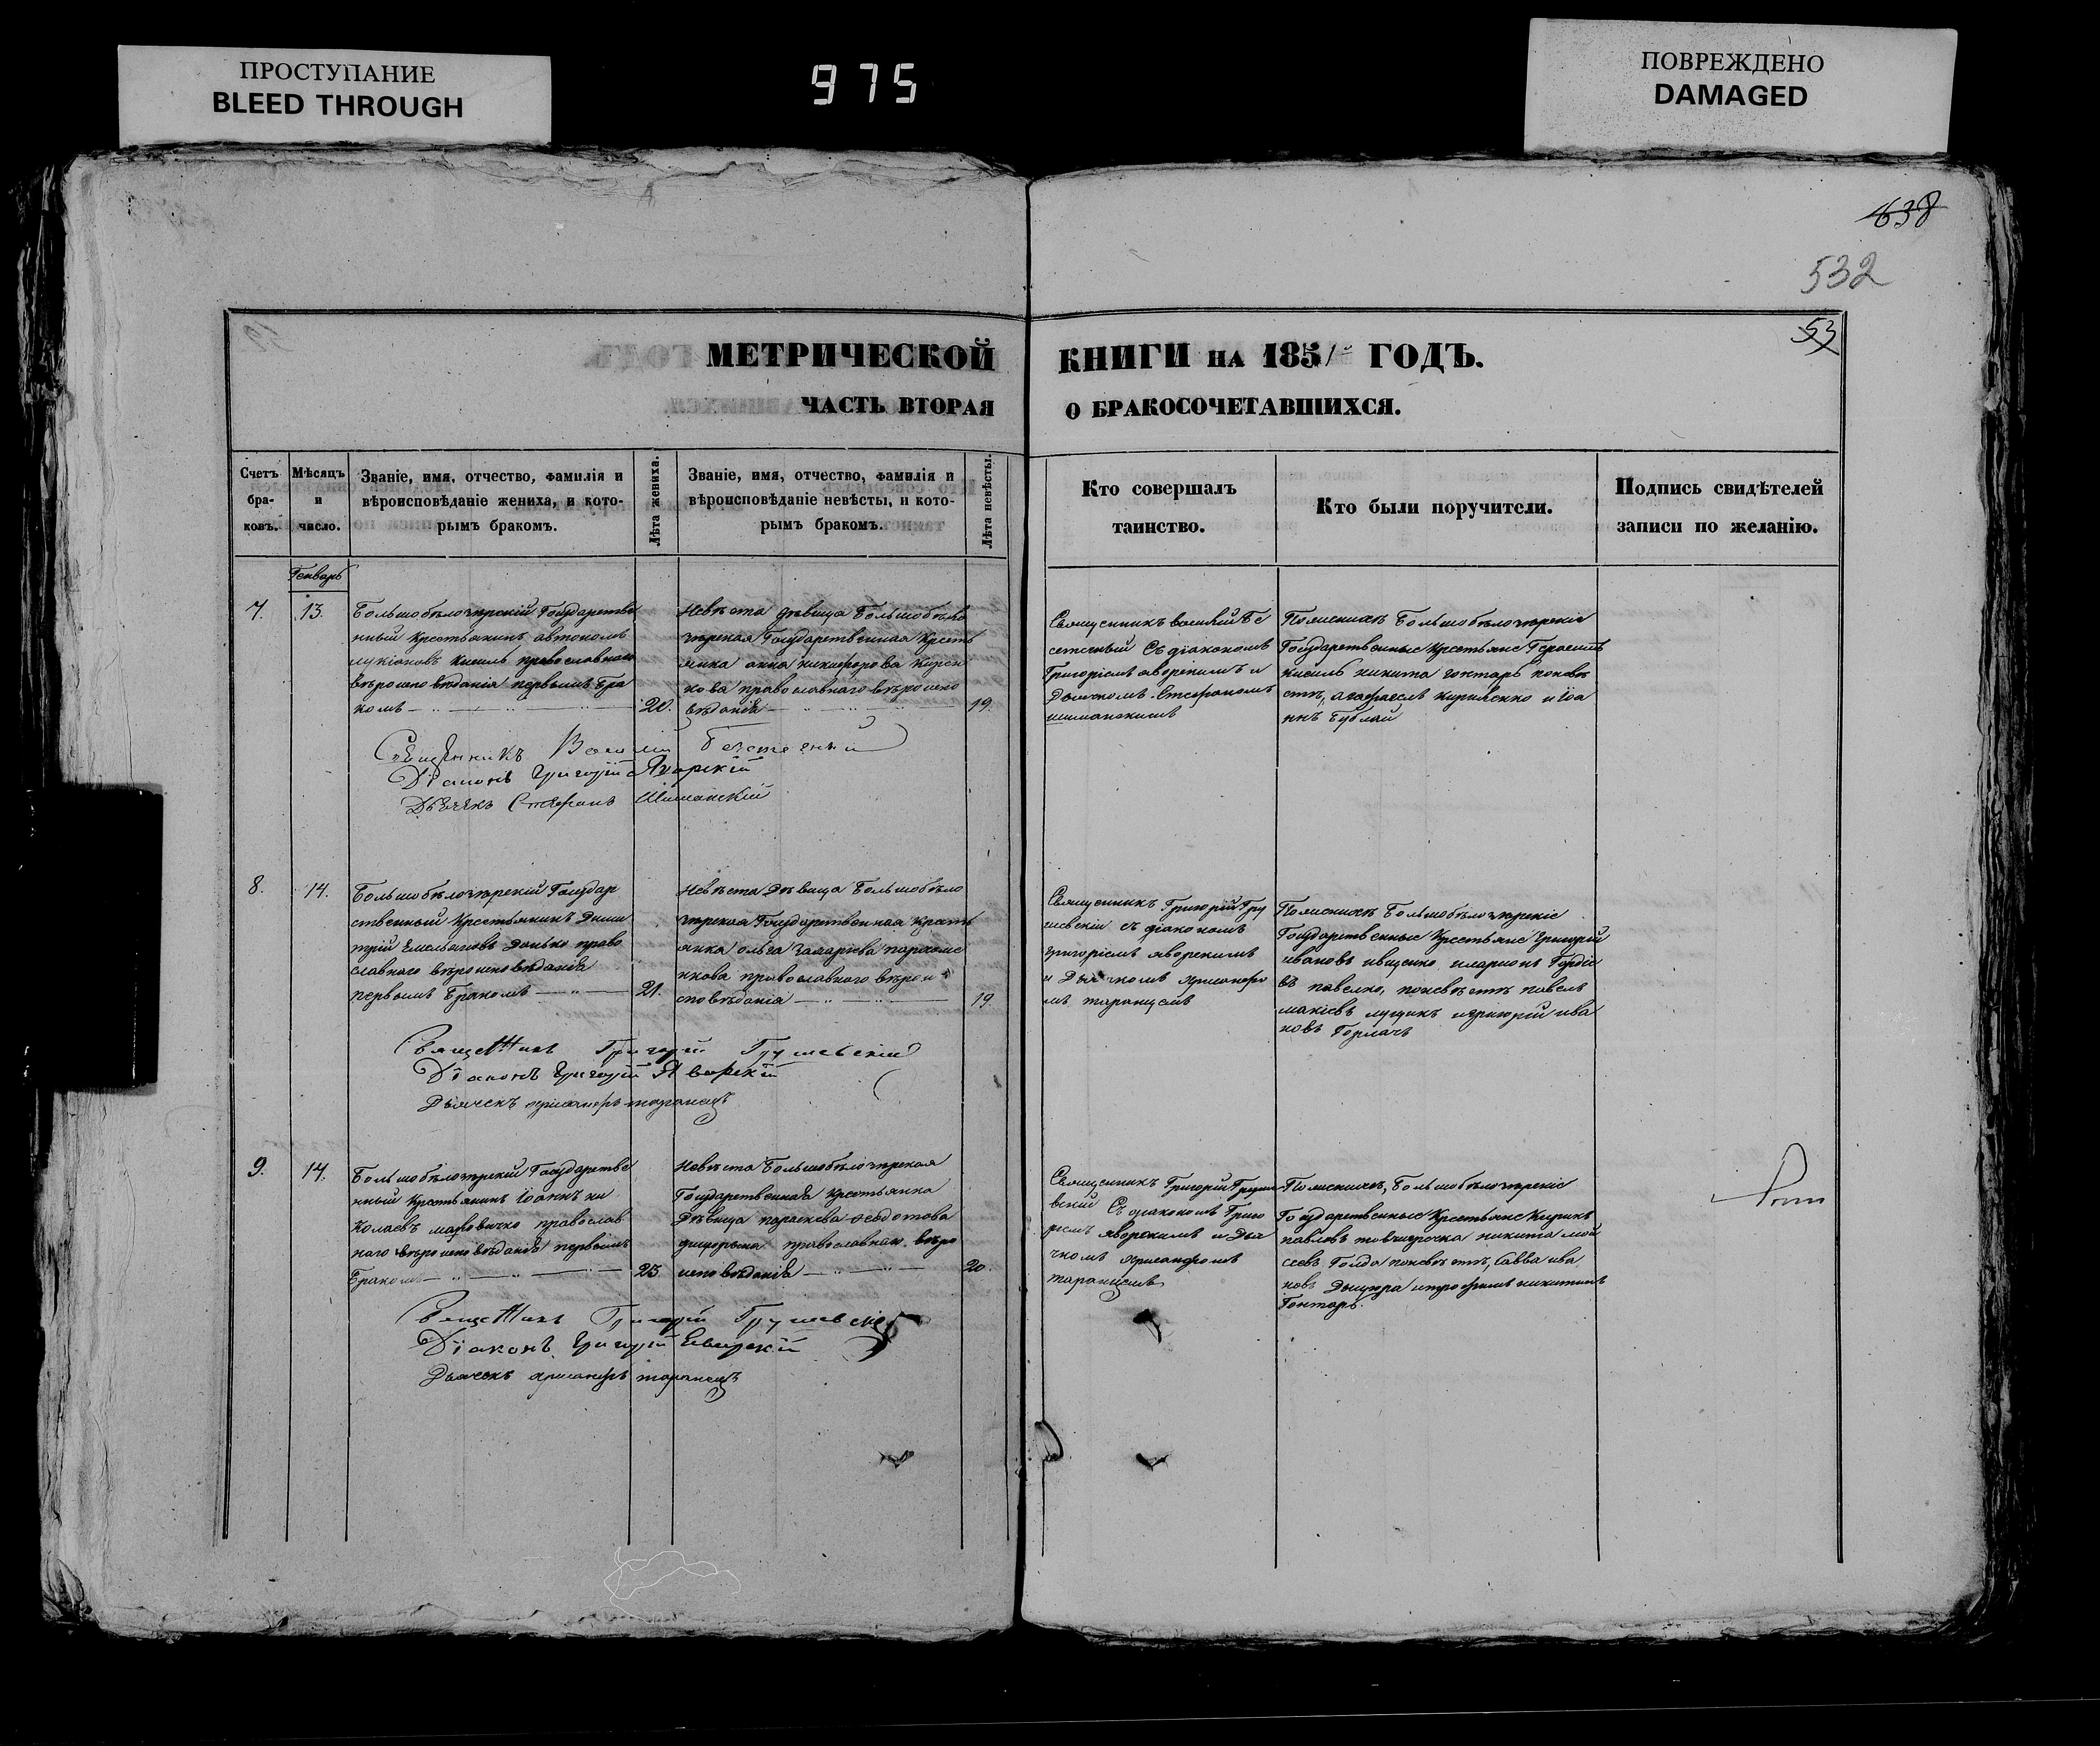 ПРОСТУПАНИЕ
BLEED THROUGH
975
ПОВРЕЖДЕНО
DAMAGED
638
532
53
МЕТРИЧЕСКОЙ КНИГИ НА 1851 ГОДЪ.
ЧАСТЬ ВТОРАЯ О БРАКОСОЧЕТАВШИХСЯ.
Счетъ
бра-
ковъ.
Мѣсяцъ
и
число.
Званіе, имя, отчество, фамилія и
вѣроисповѣданіе жениха, и кото-
рымъ бракомъ.
Лѣта жениха.
Званіе, имя, отчество, фамилія и
вѣроисповѣданіе невѣсты, и кото-
рымъ бракомъ.
Лѣта невѣсты.
Кто совершалъ
таинство.
Кто были поручители.
Подпись свидѣтелей
записи по желанію.
Генварь
7.
13.
Большобѣлозѣрскій Государстве
нный Крестьянинъ автономъ
лукіановъ Кисиль православнаго
вѣроисповѣданія первымъ бра
комъ
20.
Невѣста дѣвица Большобѣло
зѣрская Государственная Кресть
янка анна никифорова
православнаго вѣроиспо
вѣданія
19.
Священникъ василій Бе
Съ діакономъ
Григоріемъ яворскимъ и
Дьячкомъ Стефаномъ
шиманскимъ
По женихѣ Большобѣлозѣрскіе
Государственные Крестьяне Герасимъ
кисиль никита гонтарь по невѣ
стѣ, кириленко и іоа
ннъ
Священникъ Василій
Діаконъ Григорій Яворскій
Дьячекъ Стефанъ Шиманскій
8.
14.
Большобѣлозѣрскій Государ
ственный Крестьянинъ Дими
трій Емельяновъ Данько право
славнаго вѣроисповѣданія
первымъ бракомъ
21.
Невѣста Дѣвица Большобѣло
зѣрская Государственная Кресть
янка ольга захаріева пархоме
нкова православнаго вѣрои
сповѣданія
19.
Священникъ Григорій Гру
шевскій съ діакономъ
григоріемъ яворскимъ
и Дьячкомъ
таранцемъ
По женихѣ Большобѣлозѣрскіе
Государственные Крестьяне Григорій
ивановъ иваценко иларіонъ Гордіе
въ павелко, по невѣстѣ павелъ
лущикъ и григорій ива
новъ Горлачъ
Священникъ Григорій Грушевскій
Діаконъ Григорій Яворскій
Дьячекъ таранецъ
9.
14.
Большобѣлозѣрскій Государстве
нный Крестьянинъ Іоаннъ ни
колаевъ православ
наго вѣроисповѣданія первымъ
бракомъ
25
Невѣста Большобѣлозѣрская
Государственная Крестьянка
Дѣвица параскева ѳеодотова
православнаго вѣро
исповѣданія
20.
Священникъ Григорій Груше
вскій Съ діакономъ Григо
ріемъ яворскимъ и Дья
чкомъ
таранцемъ
По женихѣ, Большобѣлозѣрскіе
Государственные Крестьяне Кирикъ
павловъ никита мой
сеевъ Гонда по невѣстѣ, Савва ива
новъ и трофимъ никитинъ
Гонтарь.
Священникъ Григорій Грушевскій
Діаконъ Григорій Яворскій
Дьячекъ таранецъ